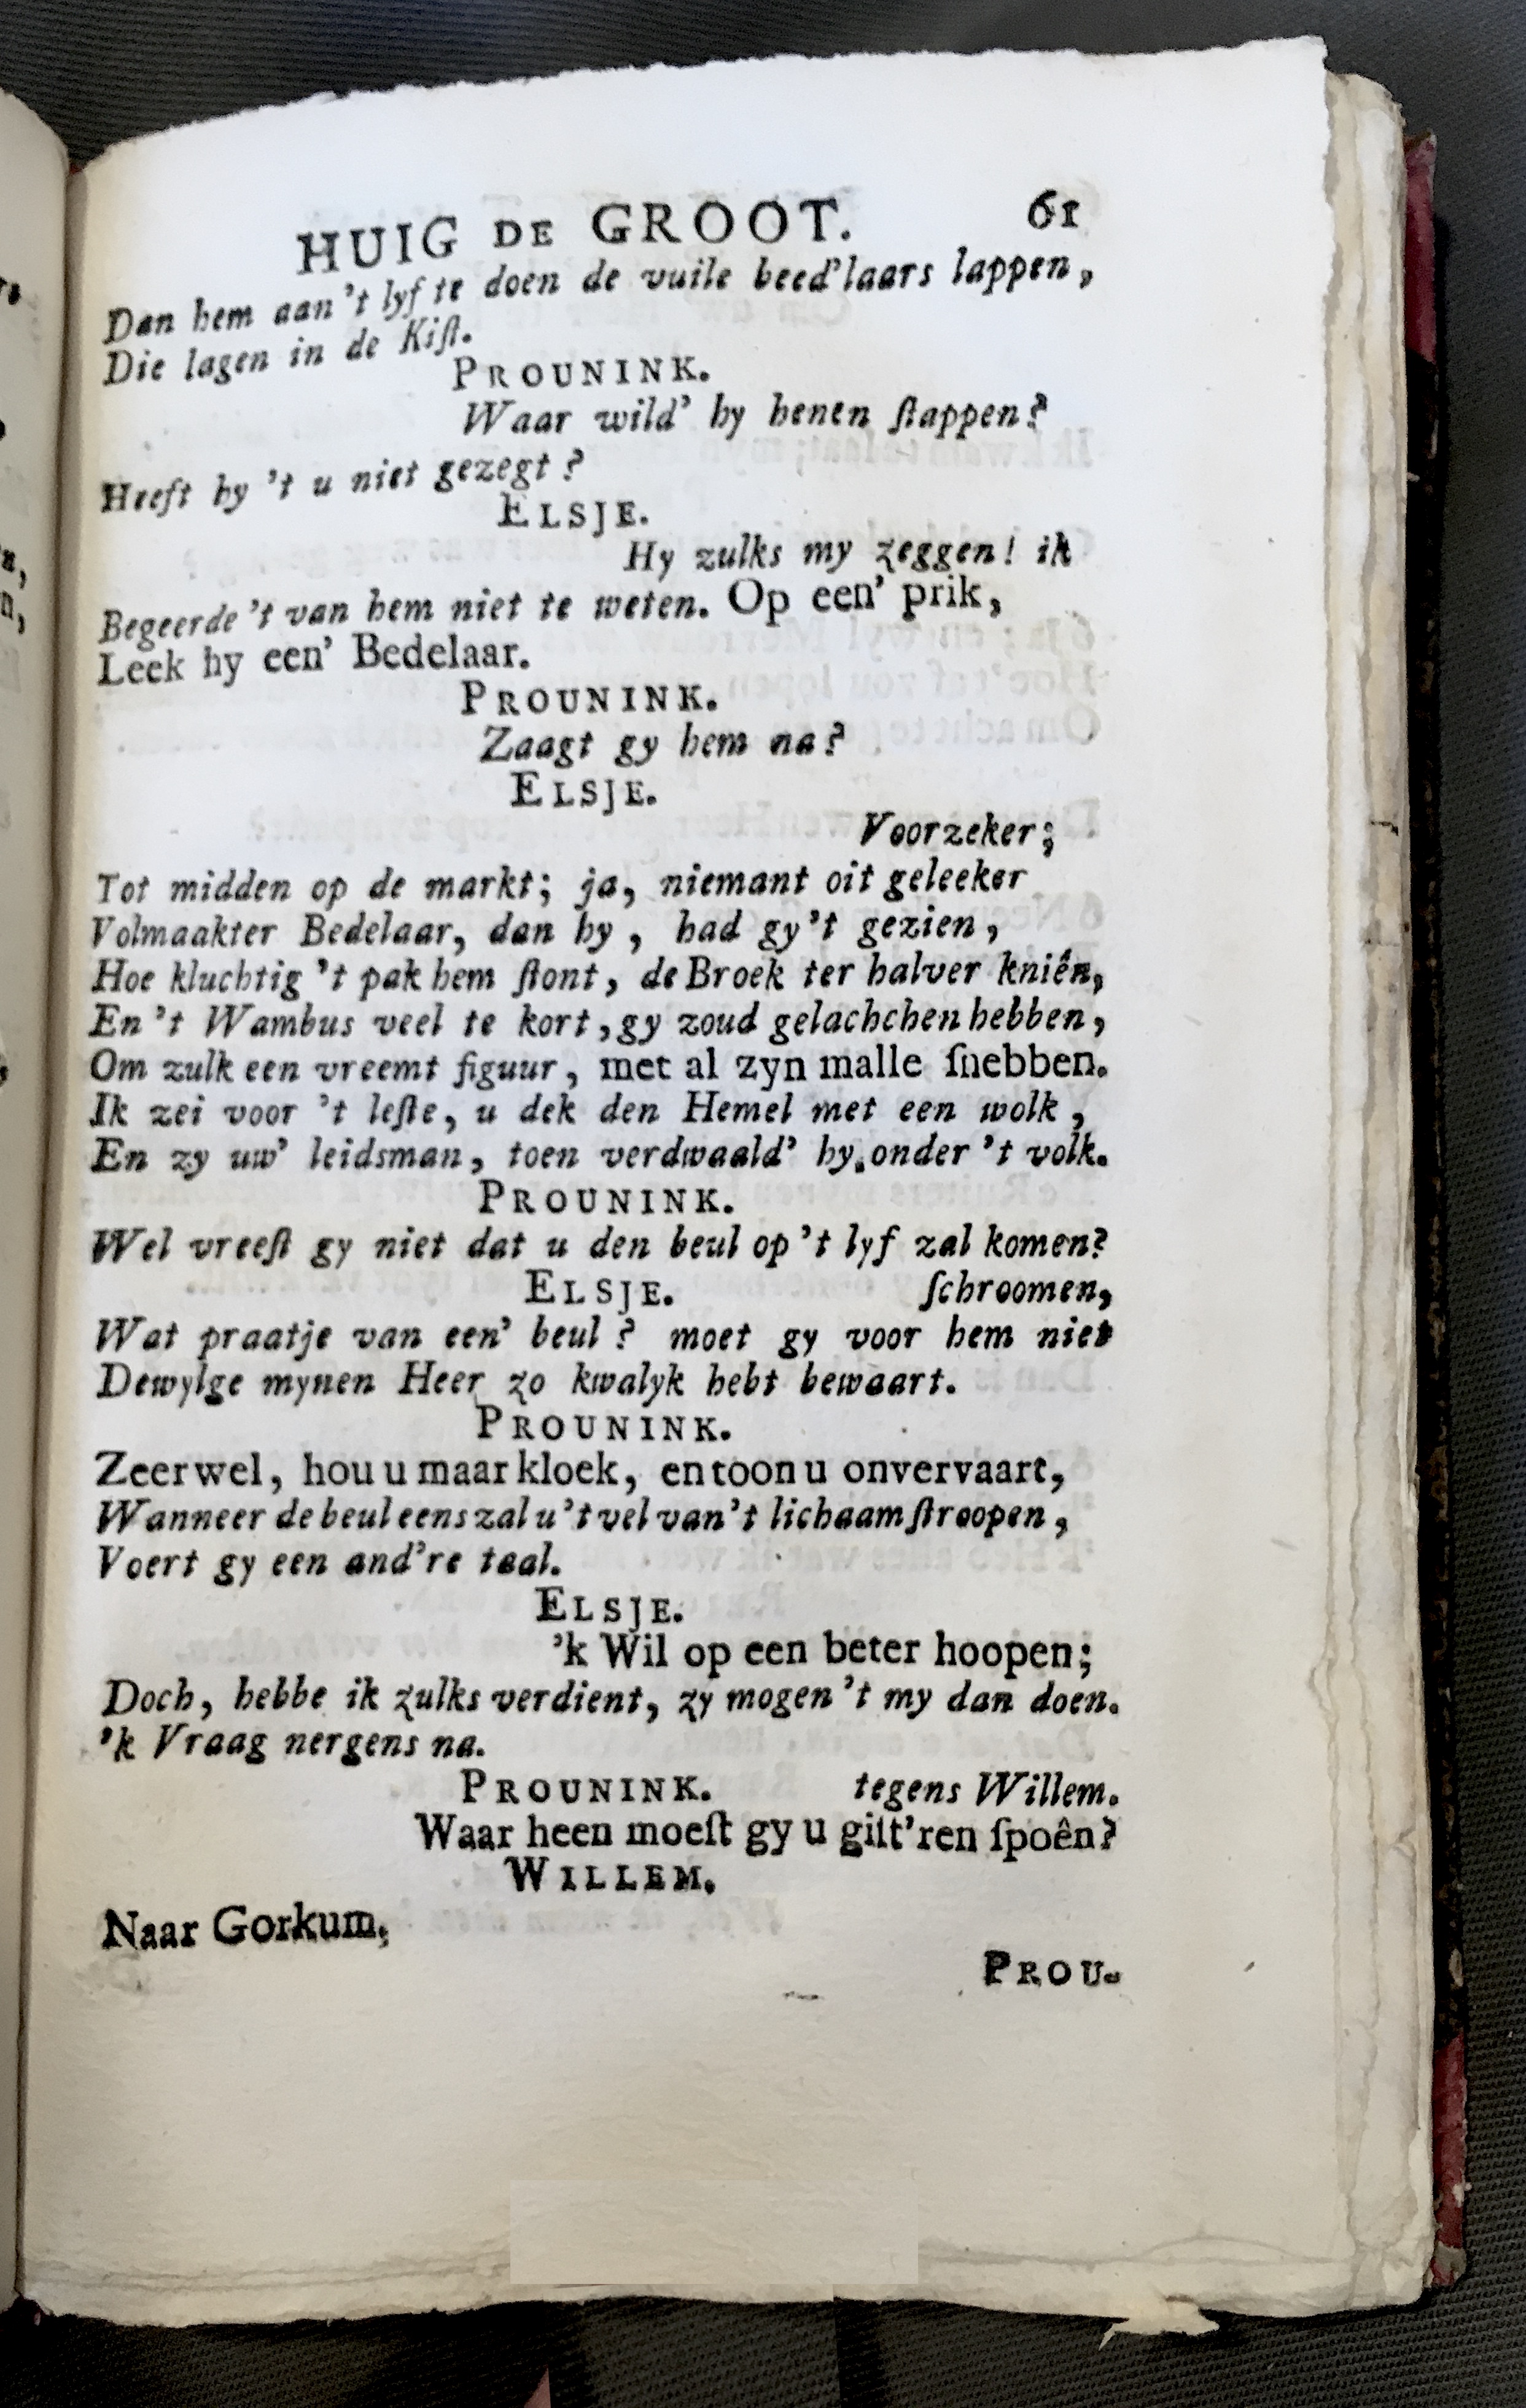 HUIG DE GROOT. 61
Dan hem aan 't lyf te doen de vuile beed'laars lappen,
Die lagen in de Kiſt.
PROUNINK.
Waar wild' hy henen ſtappen?
Heeft hy 't u niet gezegt?
ELSJE.
Hy zulks my zeggen! ik
Begeerde 't van hem niet te weten. Op een' prik,
Leek hy een' Bedelaar.
PROUNINK.
Zaagt gy hem na?
ELSJE.
Voorzeker;
Tot midden op de markt; ja, niemant oit geleeker
Volmaakter Bedelaar, dan hy, had gy 't gezien,
Hoe kluchtig 't pak hem ſtont, de Broek ter halver kniên,
En 't Wambus veel te kort, gy zoud gelachchen hebben,
Om zulk een vreemt figuur, met al zyn malle ſnebben.
Ik zei voor 't leſte, u dek den Hemel met een wolk,
En zy uw' leidsman, toen verdwaald' hy onder 't volk.
PROUNINK.
Wel vreeſt gy niet dat u den beul op 't lyf zal komen?
ELSJE. ſchroomen,
Wat praatje van een' beul? moet gy voor hem niet
Dewylge mynen Heer zo kwalyk hebt bewaart.
PROUNINK.
Zeer wel, hou u maar kloek, en toon u onvervaart,
Wanneer de beul eens zal u 't vel van 't lichaam ſtroopen,
Voert gy een and're taal.
ELSJE.
'k Wil op een beter hoopen;
Doch, hebbe ik zulks verdient, zy mogen 't my dan doen.
'k Vraag nergens na.
PROUNINK. tegens Willem.
Waar heen moeſt gy u giſt'ren ſpoên?
WILLEM.
Naar Gorkum,
PROU-